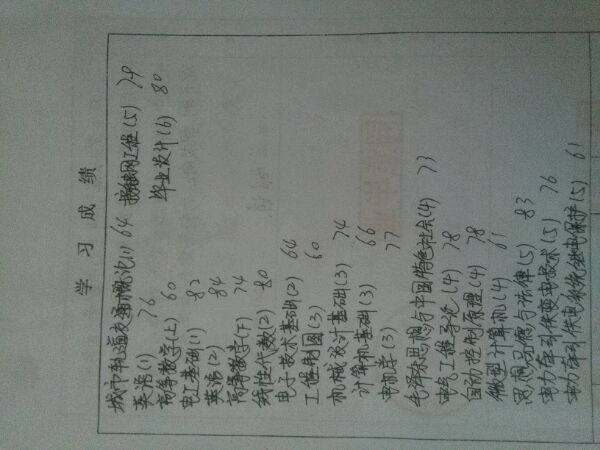 学习成绩
城市轨道交通概论(1) 64
英语(1) 76
高等数学(上) 60
电工基础(1) 82
英语(2) 84
高等数学(下) 74
线性代数(2) 80
电子技术基础(2) 64
工程制图(3) 60
机械设计基础(3) 74
计算机基础(3) 66
电机学(3) 77
毛泽东思想与中国特色社会(4) 73
电气工程导论(4) 78
自动控制原理(4) 78
微型计算机(4) 61
思想品德与法律(5) 83
电力牵引供变电技术(5) 76
电力牵引供电系统继电保护(5) 61
接触网工程(5) 79
毕业设计(6) 80